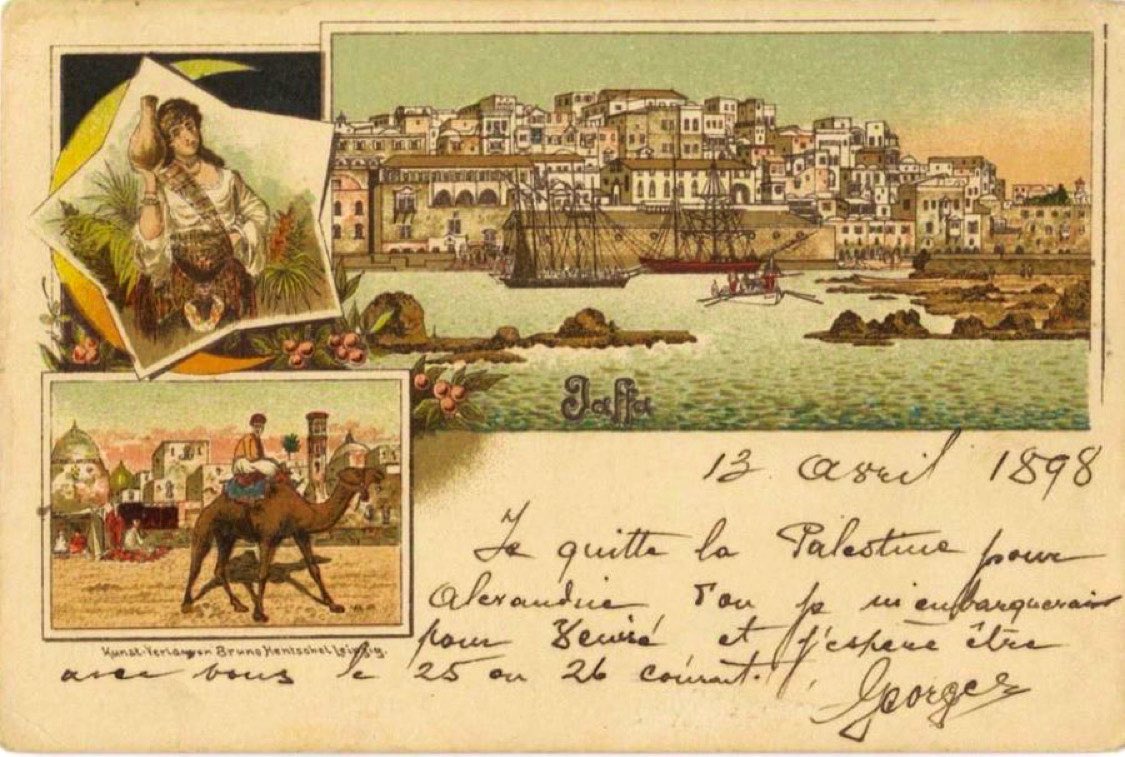 Jaffa
13 avril 1898
Je quitte la Palestine pour
Alexandrie d'ou je m'embarquerais
pour Venise et j'espère être
Kunst-Verlag von Bruno Hentschel Leipzig.
avec vous le 25 ou 26 courant.
Georges